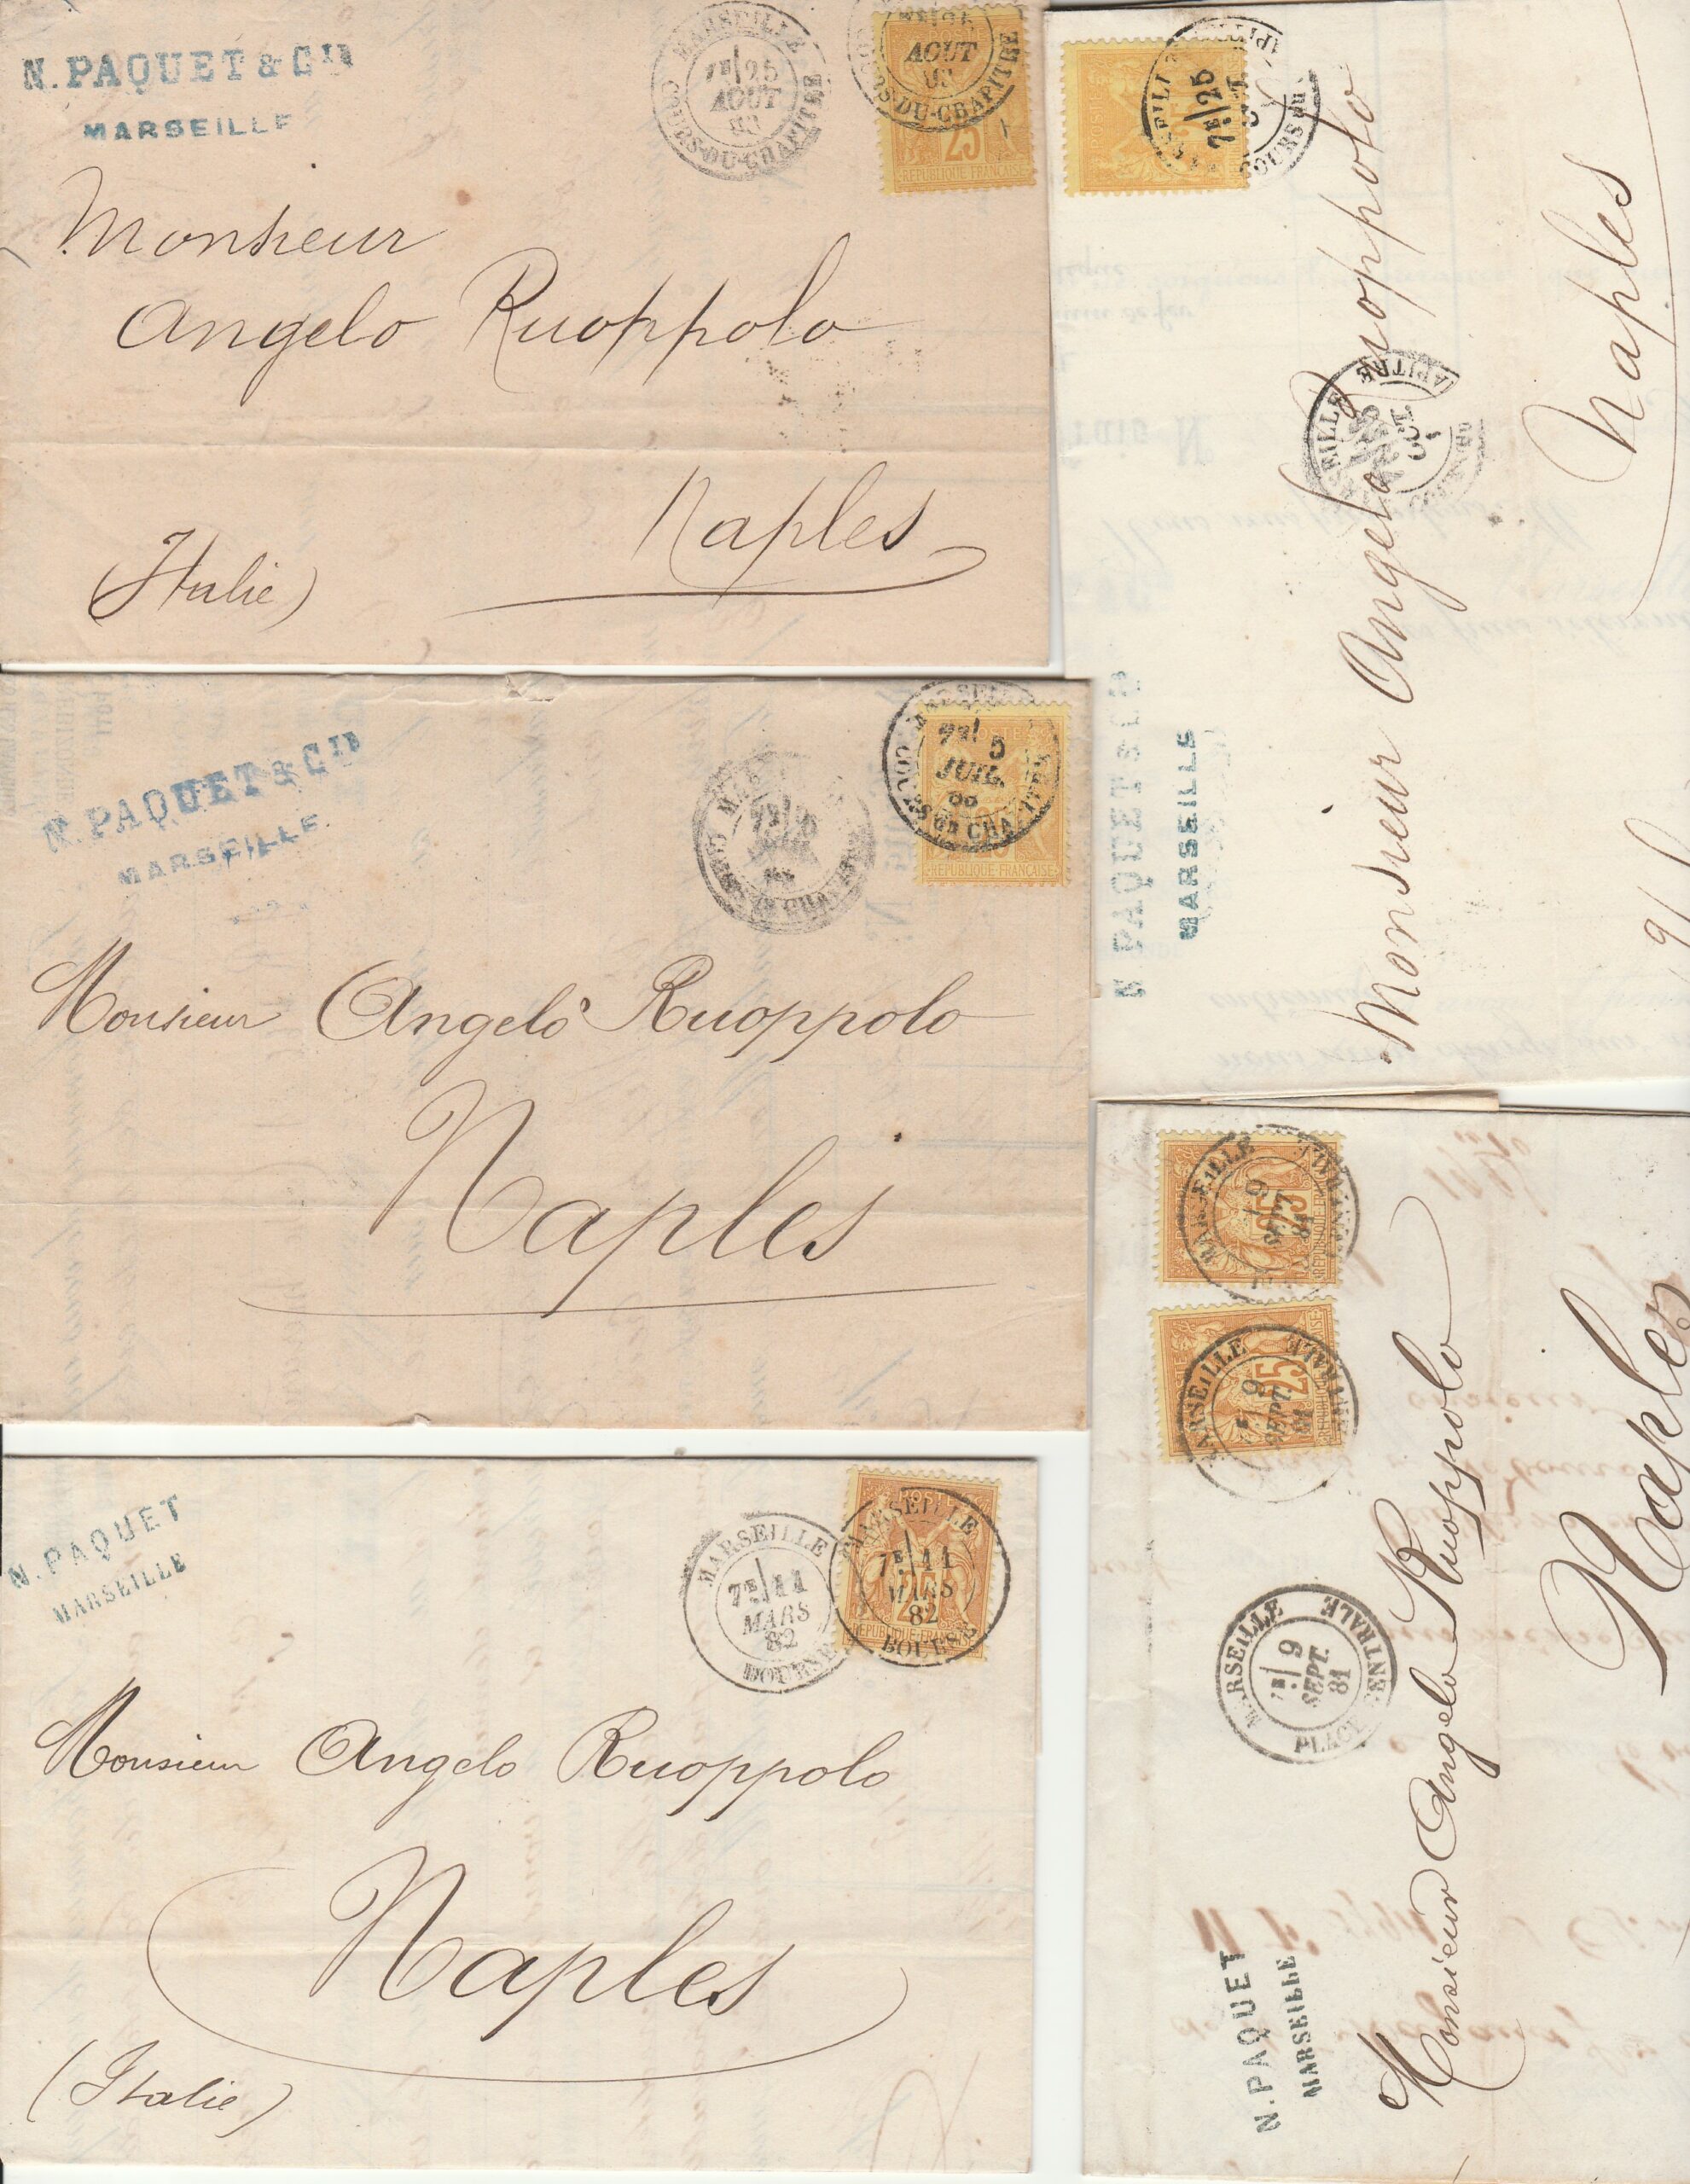 N. PAQUET & Cie
MARSEILLE
MARSEILLE
7E 25
AOUT
83
COURS-DU-CHAPITRE
AOUT
83
COURS-DU-CHAPITRE
25
REPUBLIQUE FRANÇAISE
Monsieur
Angelo Ruoppolo
Naples
(Italie)
N. PAQUET & Cie
MARSEILLE
7E 5
JUIL.
COURS DU CHAPITRE
REPUBLIQUE FRANÇAISE
Monsieur Angelo Ruoppolo
Naples
N. PAQUET
MARSEILLE
MARSEILLE
7E 11
MARS
82
BOURSE
POSTES
MARSEILLE
7E 11
MARS
82
BOURSE
25
REPUBLIQUE FRANÇAISE
Monsieur Angelo Ruoppolo
Naples
(Italie)
7E 25
COURS DU
MARSEILLE
OCT.
N. PAQUET & Cie
MARSEILLE
Monsieur Angelo Ruoppolo
Naples
MARSEILLE
9
SEPT.
81
25
MARSEILLE
9
SEPT.
81
25
MARSEILLE
7E 9
SEPT.
81
PLACE CENTRALE
N. PAQUET
MARSEILLE
Monsieur Angelo Ruoppolo
Naples